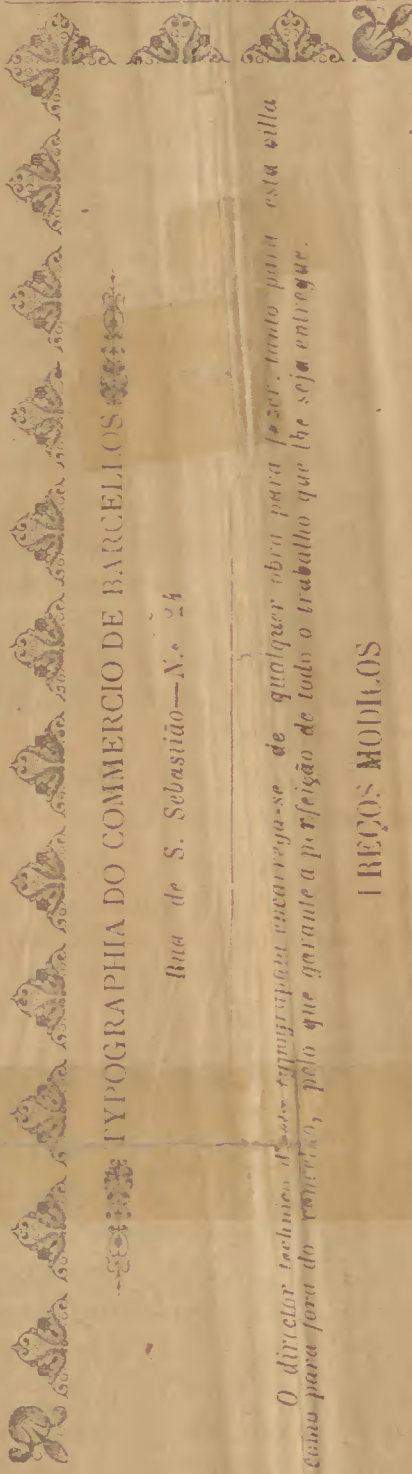 TYPOGRAPHIA DO COMMERCIO DE BARCELLOS
Rua de S. Sebastião—N.º 24
O director technico d'esta typographia encarrega-se de qualquer obra para fazer, tanto para esta villa
como para fora do concelho, pelo que garante a perfeição de todo o trabalho que lhe seja entregue.
PREÇOS MODICOS